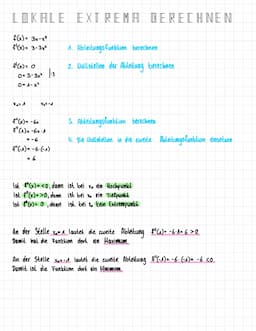 LOKALE EXTREMA BERECHNEN
f(x) = 3x-x³
f'(x) = 3-3x²
1. Ableitungsfunktion berechnen
f'(x) = 0
2. Nullstellen der Ableitung berechnen
0 = 3-3x² |:3
0 = 1-x²
x₁=1 x₂=-1
f''(x) = -6x
3. Ableitungsfunktion berechnen
f''(1) = -6·1
= -6
4. Die Nullstellen in die zweite Ableitungsfunktion einsetzen
f''(-1) = -6·(-1)
= 6
Ist f''(x) < 0, dann ist bei x₀ ein Hochpunkt
Ist f''(x) > 0, dann ist bei x₀ ein Tiefpunkt
Ist f''(x) = 0, dann ist bei x₀ kein Extrempunkt
An der Stelle x₁=1 lautet die zweite Ableitung f''(1) = -6·1 = 6 > 0
Damit hat die Funktion dort ein Maximum
An der Stelle x₂=-1 lautet die zweite Ableitung f''(-1) = -6·(-1) = -6 < 0
Damit ist die Funktion dort ein Minimum